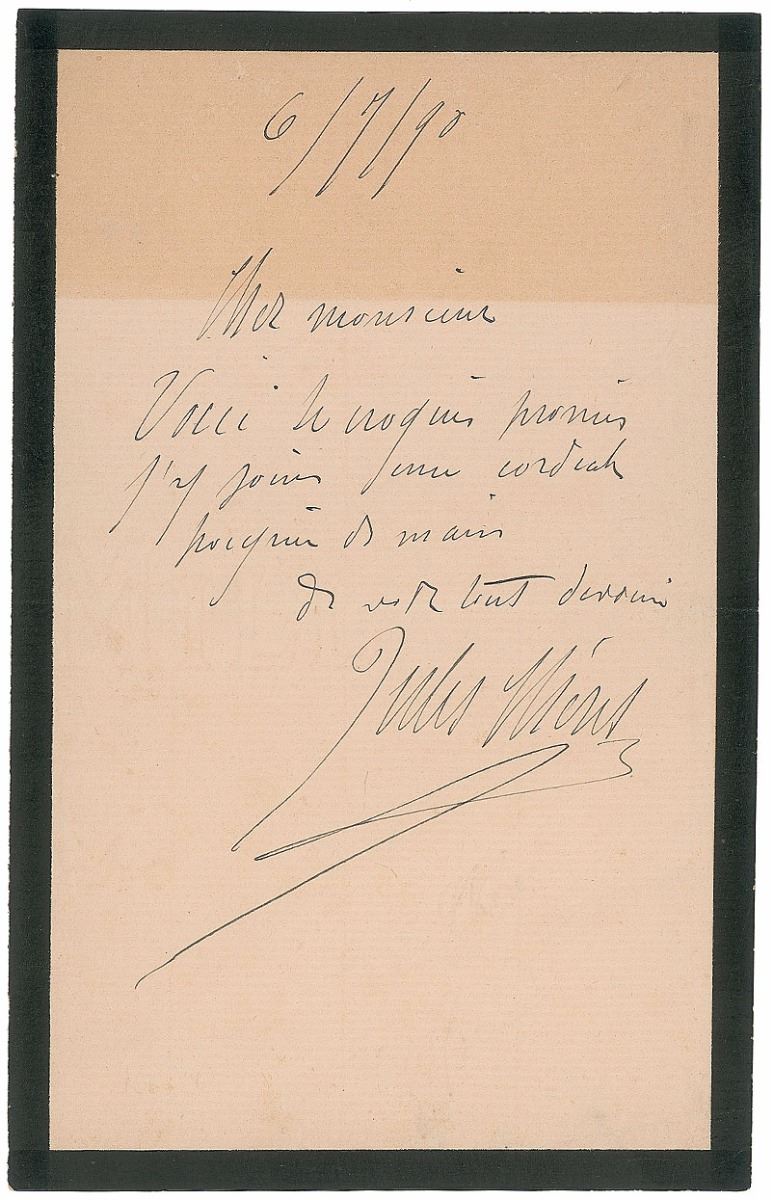 6/7/90
Cher monsieur
Voici le croquis promis
j'y joins une cordiale
poignée de main
de votre tout dévoué
Jules